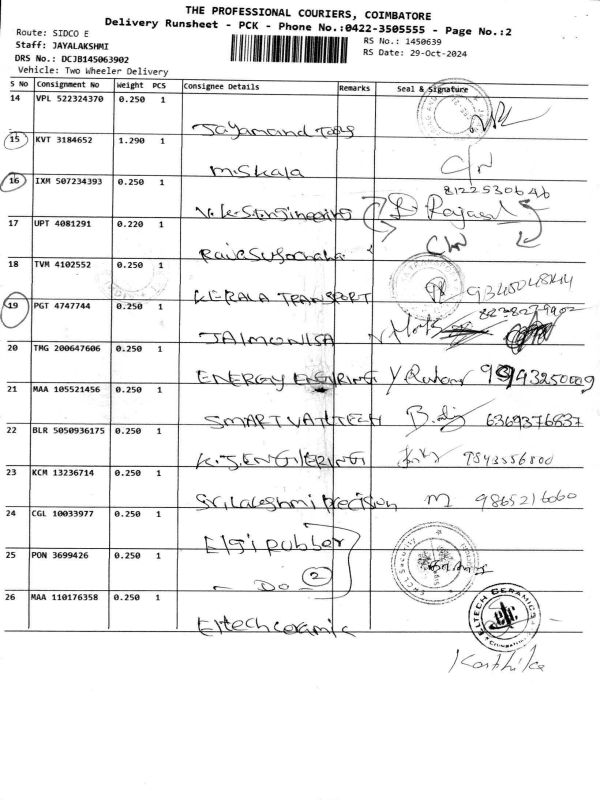 THE PROFESSIONAL COURIERS, COIMBATORE
Delivery Runsheet - PCK - Phone No.:0422-3505555 - Page No.:2
Route: SIDCO E
RS No.: 1450639
Staff: JAYALAKSHMI
RS Date: 29-Oct-2024
DRS No.: DCJB145063902
Vehicle: Two Wheeler Delivery
S No Consignment No Weight PCS Consignee Details Remarks Seal & Signature
14 VPL 522324370 0.250 1
15 KVT 3184652 1.290 1 M.Skala
16 IXM 507234393 0.250 1 V.K.S.Engineering 8122530646 Rajasal
17 UPT 4081291 0.220 1
18 TVM 4102552 0.250 1 KERALA TRANSPORT
19 PGT 4747744 0.250 1 JAIMONISA
20 TMG 200647606 0.250 1 ENERGY ENGIRING
21 MAA 105521456 0.250 1 SMARTVATLTECH 6369376837
22 BLR 5050936175 0.250 1 K.J.ENGIVERING
23 KCM 13236714 0.250 1 Sri.Lakshmi Precision M 9865216060
24 CGL 10033977 0.250 1 Elgi Rubber
25 PON 3699426 0.250 1 - Do - 2
26 MAA 110176358 0.250 1 Eltech ceramic
ELTECH CERAMICS
Karthika